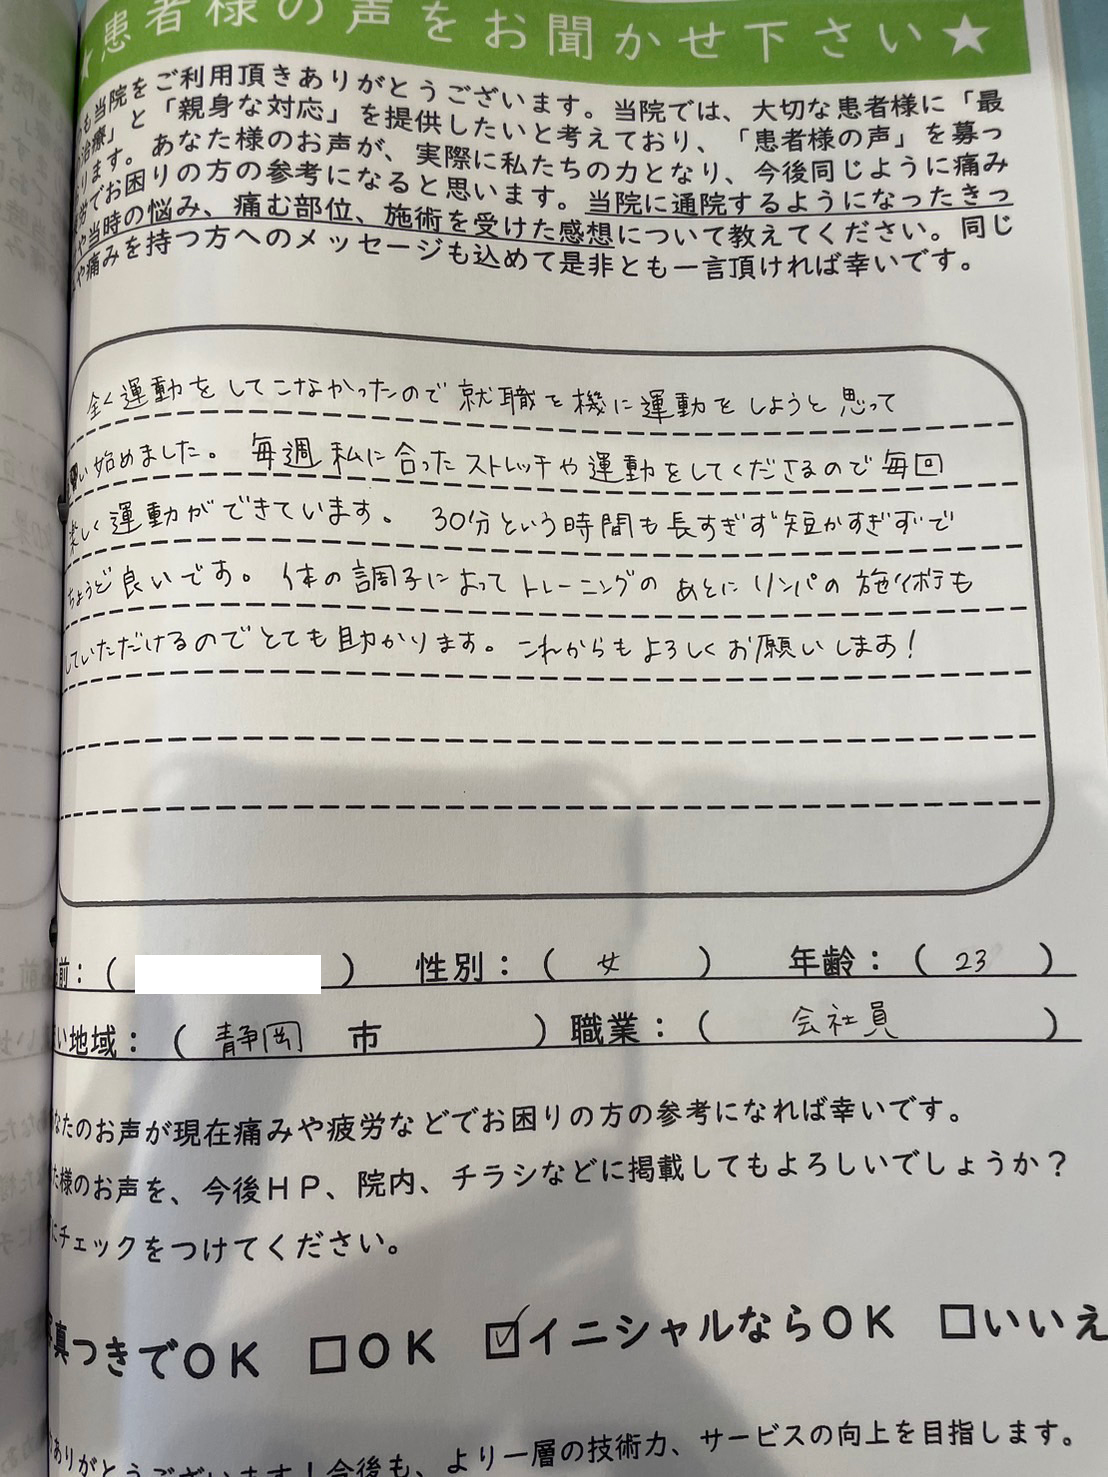 ★患者様の声をお聞かせ下さい★
も当院をご利用頂きありがとうございます。当院では、大切な患者様に「最
治療」と「親身な対応」を提供したいと考えており、「患者様の声」を募っ
ります。あなた様のお声が、実際に私たちの力となり、今後同じように痛み
労でお困りの方の参考になると思います。当院に通院するようになったきっ
や当時の悩み、痛む部位、施術を受けた感想について教えてください。同じ
や痛みを持つ方へのメッセージも込めて是非とも一言頂ければ幸いです。
全く運動をしてこなかったので就職を機に運動をしようと思って
い始めました。毎週私に合ったストレッチや運動をしてくださるので毎回
楽しく運動ができています。30分という時間も長すぎず短かすぎずで
ちょうど良いです。体の調子によってトレーニングのあとにリンパの施術も
していただけるのでとても助かります。これからもよろしくお願いします!
前:( ) 性別:( 女 ) 年齢:( 23 )
い地域:( 静岡 市 ) 職業:( 会社員 )
なたのお声が現在痛みや疲労などでお困りの方の参考になれば幸いです。
た様のお声を、今後HP、院内、チラシなどに掲載してもよろしいでしょうか?
にチェックをつけてください。
真つきでOK □OK ☑イニシャルならOK □いいえ
ありがとうございます!今後も、より一層の技術力、サービスの向上を目指します。